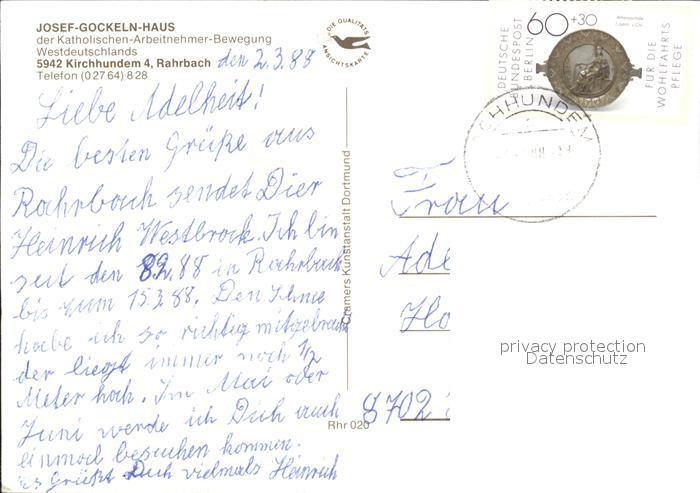 JOSEF-GOCKELN-HAUS
der Katholischen-Arbeitnehmer-Bewegung
Westdeutschlands
5942 Kirchhundem 4, Rahrbach
Telefon (0 27 64) 8 28
den 2.3.88
DIE QUALITÄTS
ANSICHTSKARTE
Liebe Adelheit!
Die besten Grüße aus
Rahrbach sendet Dier
Heinrich Westbrock. Ich bin
seit den 8.2.88 in Rahrbach
bis zum 15.3.88. Den Schne
habe ich so richtig mitgebracht
der liegt immer noch 1/2
Meter hoch. Im Mai oder
Juni werde ich Dich auch
einmal besuchen kommen.
Es Grüßt Dich vielmals Heinrich
Cramers Kunstanstalt Dortmund
Rhr 020
DEUTSCHE
BUNDESPOST
BERLIN
60+30
Athenaschale
FÜR DIE
WOHLFAHRTS
PFLEGE
CHHUNDEM
Frau
Ade
Ho
8702
privacy protection
Datenschutz